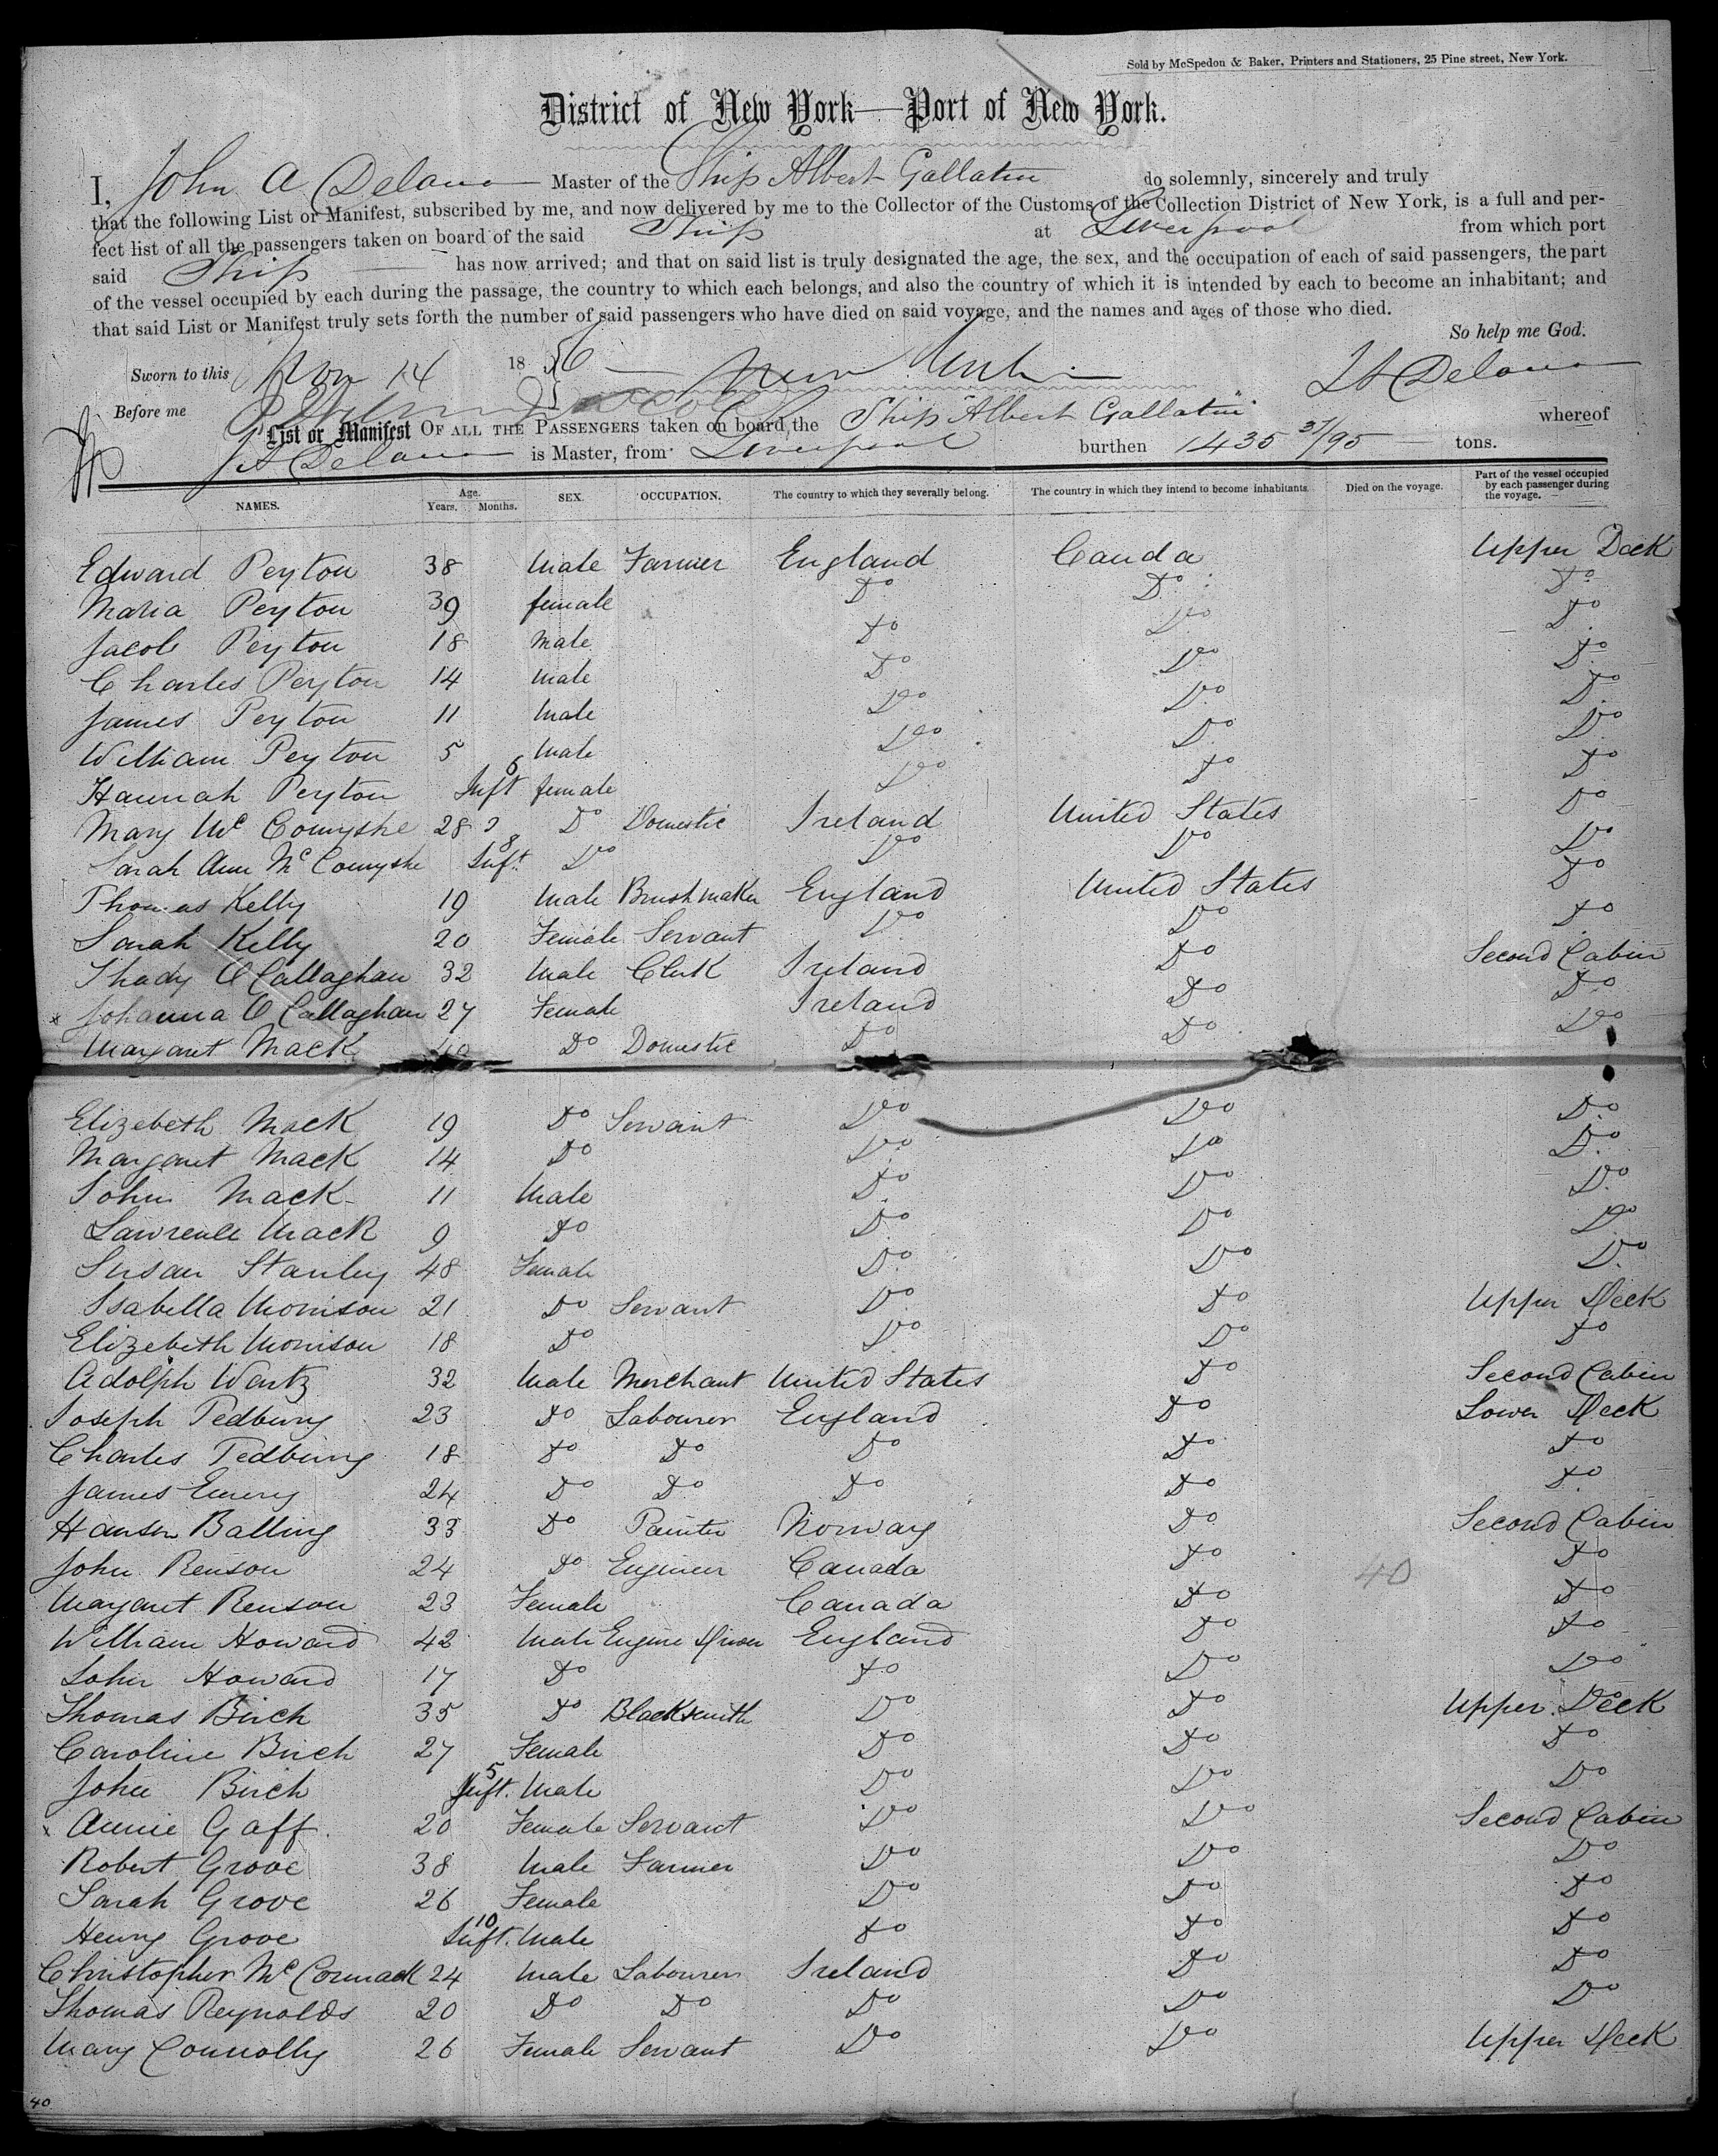 Sold by McSpedon & Baker, Printers and Stationers, 25 Pine street, New York.
District of New York—Port of New York.
I, John A Delano Master of the Ship Albert Gallatin do solemnly, sincerely and truly
that the following List or Manifest, subscribed by me, and now delivered by me to the Collector of the Customs of the Collection District of New York, is a full and per-
fect list of all the passengers taken on board of the said Ship at Liverpool from which port
said Ship has now arrived; and that on said list is truly designated the age, the sex, and the occupation of each of said passengers, the part
of the vessel occupied by each during the passage, the country to which each belongs, and also the country of which it is intended by each to become an inhabitant; and
that said List or Manifest truly sets forth the number of said passengers who have died on said voyage, and the names and ages of those who died.
So help me God.
Sworn to this Nov 14 1856 New York J A Delano
Before me
List or Manifest OF ALL THE PASSENGERS taken on board the Ship Albert Gallatin whereof
J A Delano is Master, from Liverpool burthen 1435 31/95 tons.
NAMES. Age. Years. Months. SEX. OCCUPATION. The country to which they severally belong. The country in which they intend to become inhabitants. Died on the voyage. Part of the vessel occupied by each passenger during the voyage.
Edward Peyton 38 Male Farmer England Canda Upper Deck
Maria Peyton 39 female Do Do Do
Jacob Peyton 18 Male Do Do Do
Charles Peyton 14 Male Do Do Do
James Peyton 11 Male Do Do Do
William Peyton 5 Male Do Do Do
Hannah Peyton 6 Inft female Do Do Do
Mary Mc Comyshe 28 Do Domestic Ireland United States Do
Sarah Ann Mc Comyshe 8 Inft. Do Do Do Do
Thomas Kelly 19 Male Brushmaker England United States Do
Sarah Kelly 20 Female Servant Do Do Do
Thady O Callaghan 32 Male Clerk Ireland Do Second Cabin
x Johanna O Callaghan 27 Female Ireland Do Do
Margaret Mack 40 Do Domestic Do Do Do
Elizebeth Mack 19 Do Servant Do Do Do
Margaret Mack 14 Do Do Do Do
John Mack 11 Male Do Do Do
Lawrence Mack 9 Do Do Do Do
Susan Stanley 48 Female Do Do Do
Isabella Morrison 21 Do Servant Do Do Upper Deck
Elizebeth Morrison 18 Do Do Do Do
Adolph Wartz 32 Male Merchant United States Do Second Cabin
Joseph Tedbury 23 Do Labourer England Do Lower Deck
Charles Tedbury 18 Do Do Do Do Do
James Emery 24 Do Do Do Do Do
Hansen Balling 33 Do Painter Norway Do Second Cabin
John Renson 24 Do Engineer Canada Do Do
40
Margaret Renson 23 Female Canada Do Do
William Howard 42 Male Engine Driver England Do Do
John Howard 17 Do Do Do Do
Thomas Birch 35 Do Blacksmith Do Do Upper Deck
Caroline Birch 27 Female Do Do Do
John Birch 5 Inft. Male Do Do Do
x Annie Gaff. 20 Female Servant Do Do Second Cabin
Robert Grove 38 Male Farmer Do Do Do
Sarah Grove 26 Female Do Do Do
Henry Grove 10 Inft. Male Do Do Do
Christopher Mc Cormack 24 Male Labourer Ireland Do Do
Thomas Reynolds 20 Do Do Do Do Do
Mary Connolly 26 Female Servant Do Do Upper Deck
40